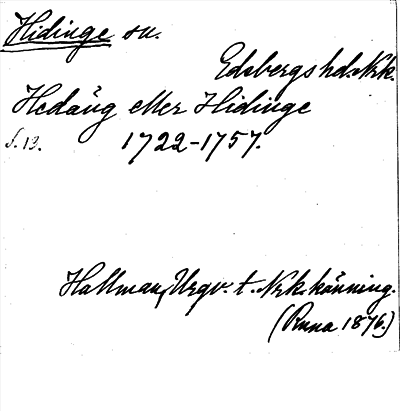 Hidinge sn.
Edsbergs hd. Nrk.
Hedäng eller Hidinge
s. 13. 1722-1757.
Hallman, Utgv. t. Nrk. känning.
(Runa 1876.)